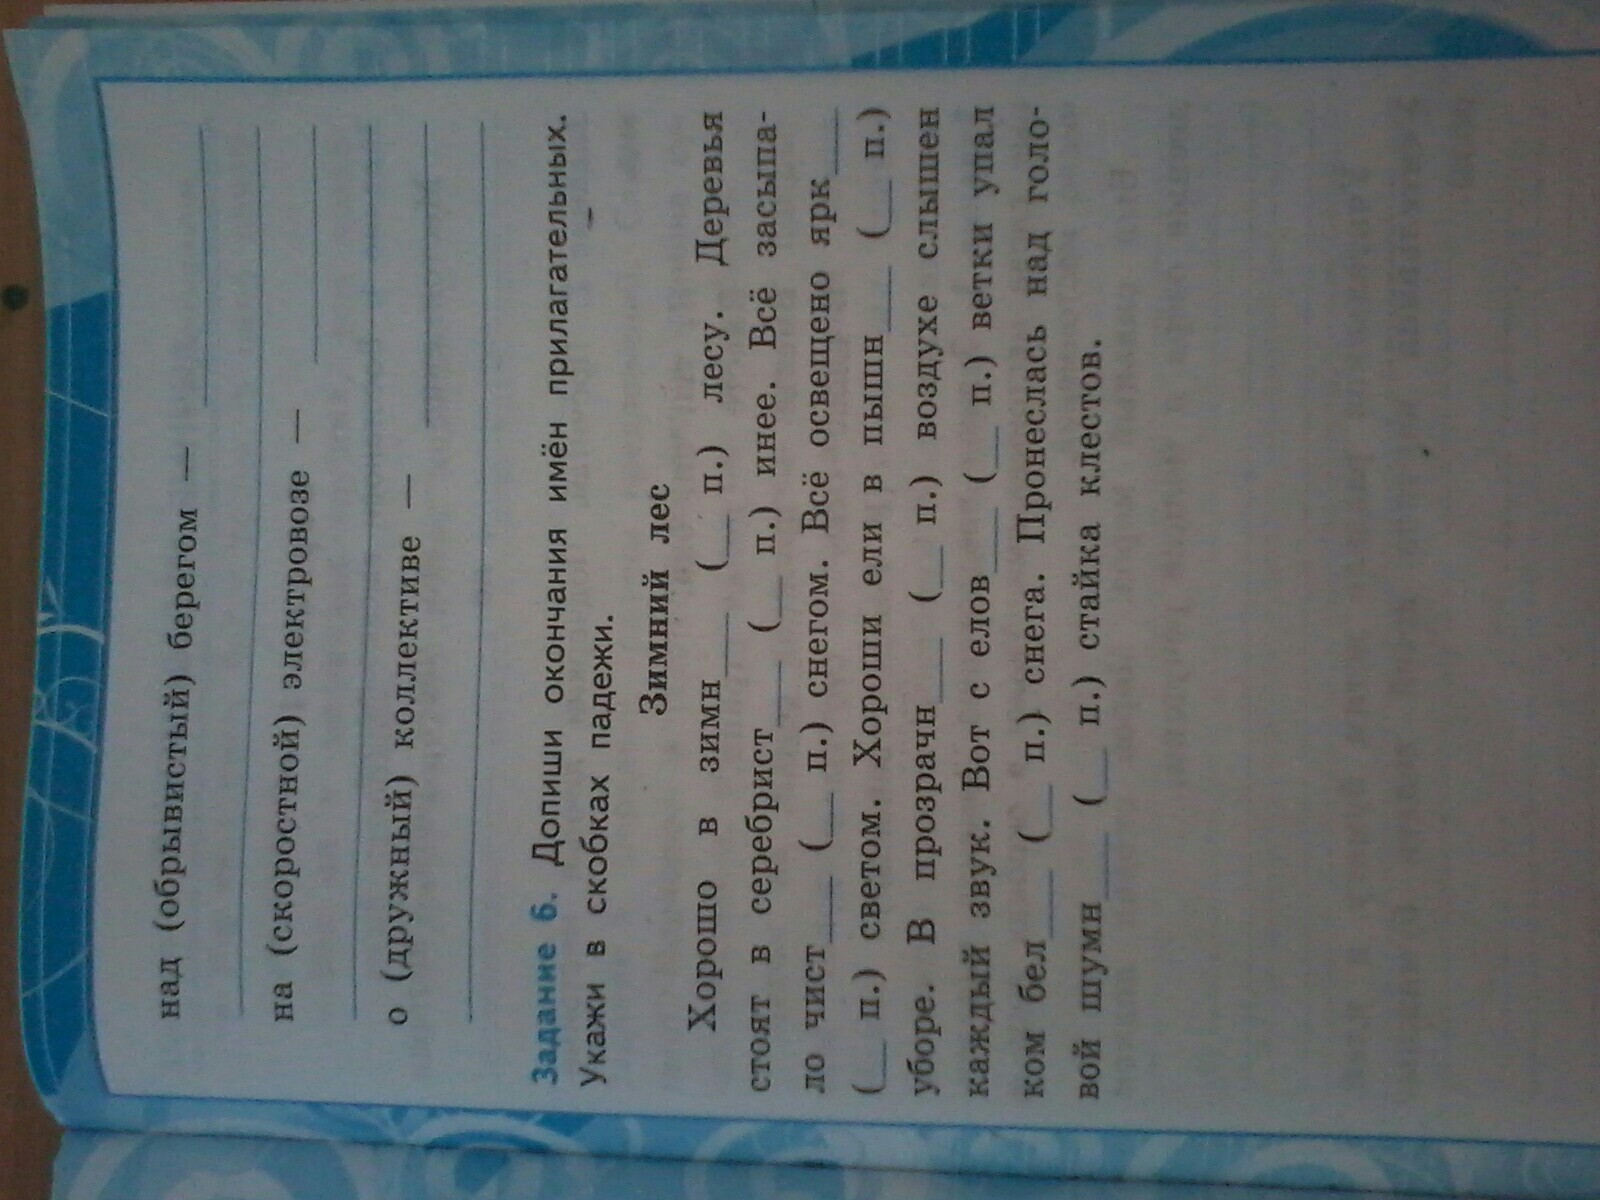 над (обрывистый) берегом — ____
____
на (скоростной) электровозе — ____
____
о (дружный) коллективе — ____
____
Задание 6. Допиши окончания имён прилагательных.
Укажи в скобках падежи.
Зимний лес
Хорошо в зимн___ (__ п.) лесу. Деревья
стоят в серебрист___ (__ п.) инее. Всё засыпа-
ло чист___ (__ п.) снегом. Всё освещено ярк___
(__ п.) светом. Хороши ели в пышн___ (__ п.)
уборе. В прозрачн___ (__ п.) воздухе слышен
каждый звук. Вот с елов___ (__ п.) ветки упал
ком бел___ (__ п.) снега. Пронеслась над голо-
вой шумн___ (__ п.) стайка клестов.